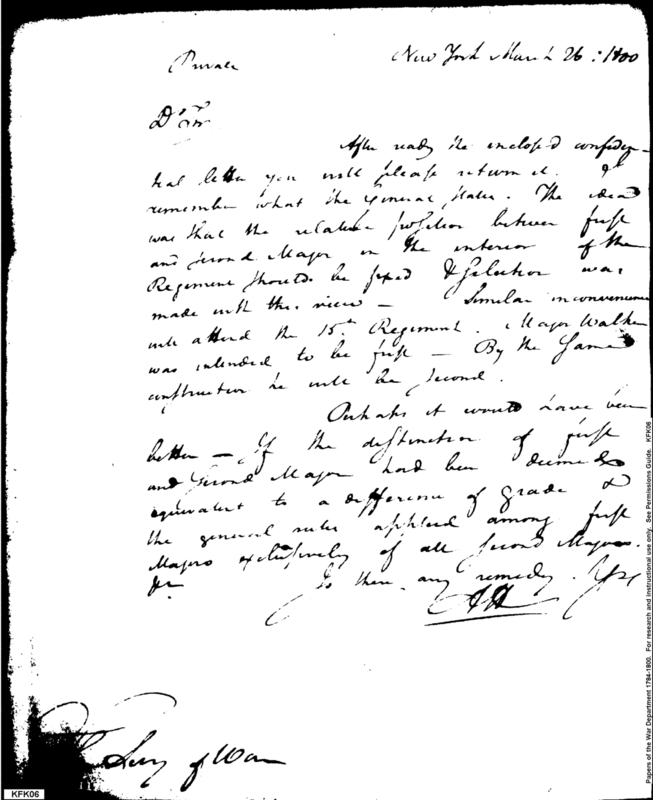 Private
New York March 26: 1800
Dr Sir
After ready the enclosed confiden-
tial letter you will please return it. I
remember what the General states. The idea
was that the relative position between first
and second Major in the interior of the
Regiment should be fixed & selection was
made with this view — Similar inconvenience
will attend the 15th Regiment. Major Walker
was intended to be first — By the same
construction he will be second.
Perhaps it would have been
better — If the distinction of first
and second Major had been deemed
equivalent to a difference of grade &
the general rules applied among first
Majors exclusively of all second Majors.
Is there any remedy. Yrs
AH
Secy of War
KFK06
Papers of the War Department 1784-1800. For research and instructional use only. See Permissions Guide. KFK06